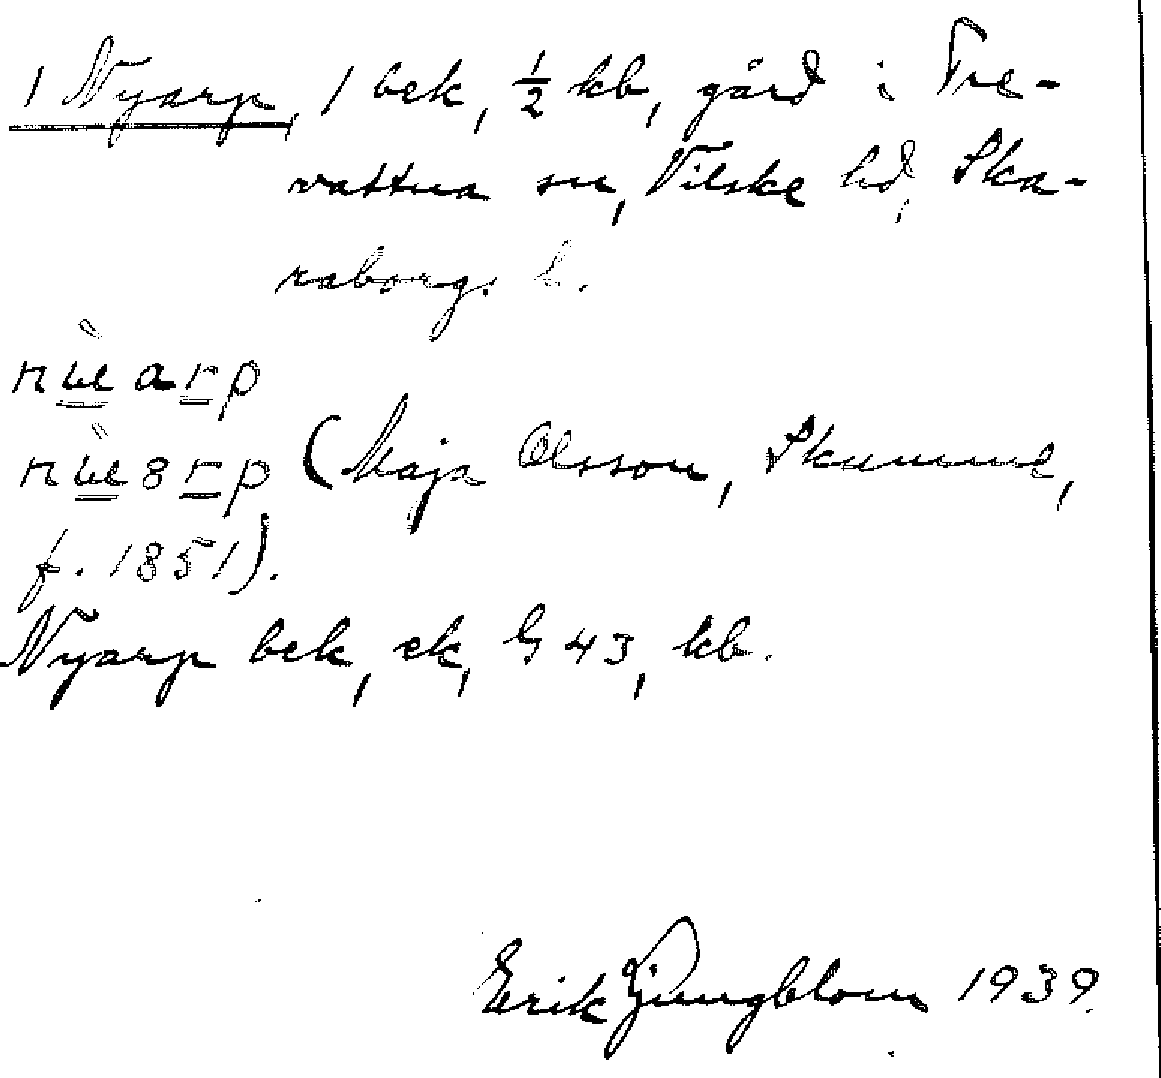 1 Nyarp, 1 bek, ½ kb, gård i Tre-
vattna sn, Vilske hd, Ska-
raborgs l.
(Maja Olsson, Skumme,
f. 1851).
Nyarp bek, ek, G 43, kb.
Erik Ljungblom 1939.